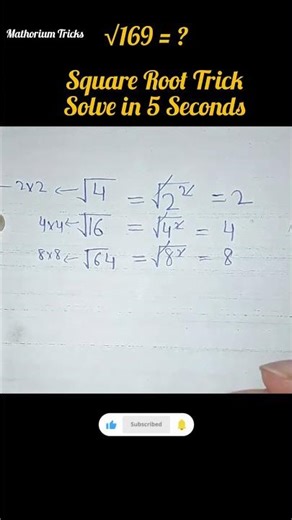 Mathorium Tricks
√169 = ?
Square Root Trick
Solve in 5 Seconds
2×2 ← √4 = √2² = 2
4×4 ← √16 = √4² = 4
8×8 ← √64 = √8² = 8
Subscribed